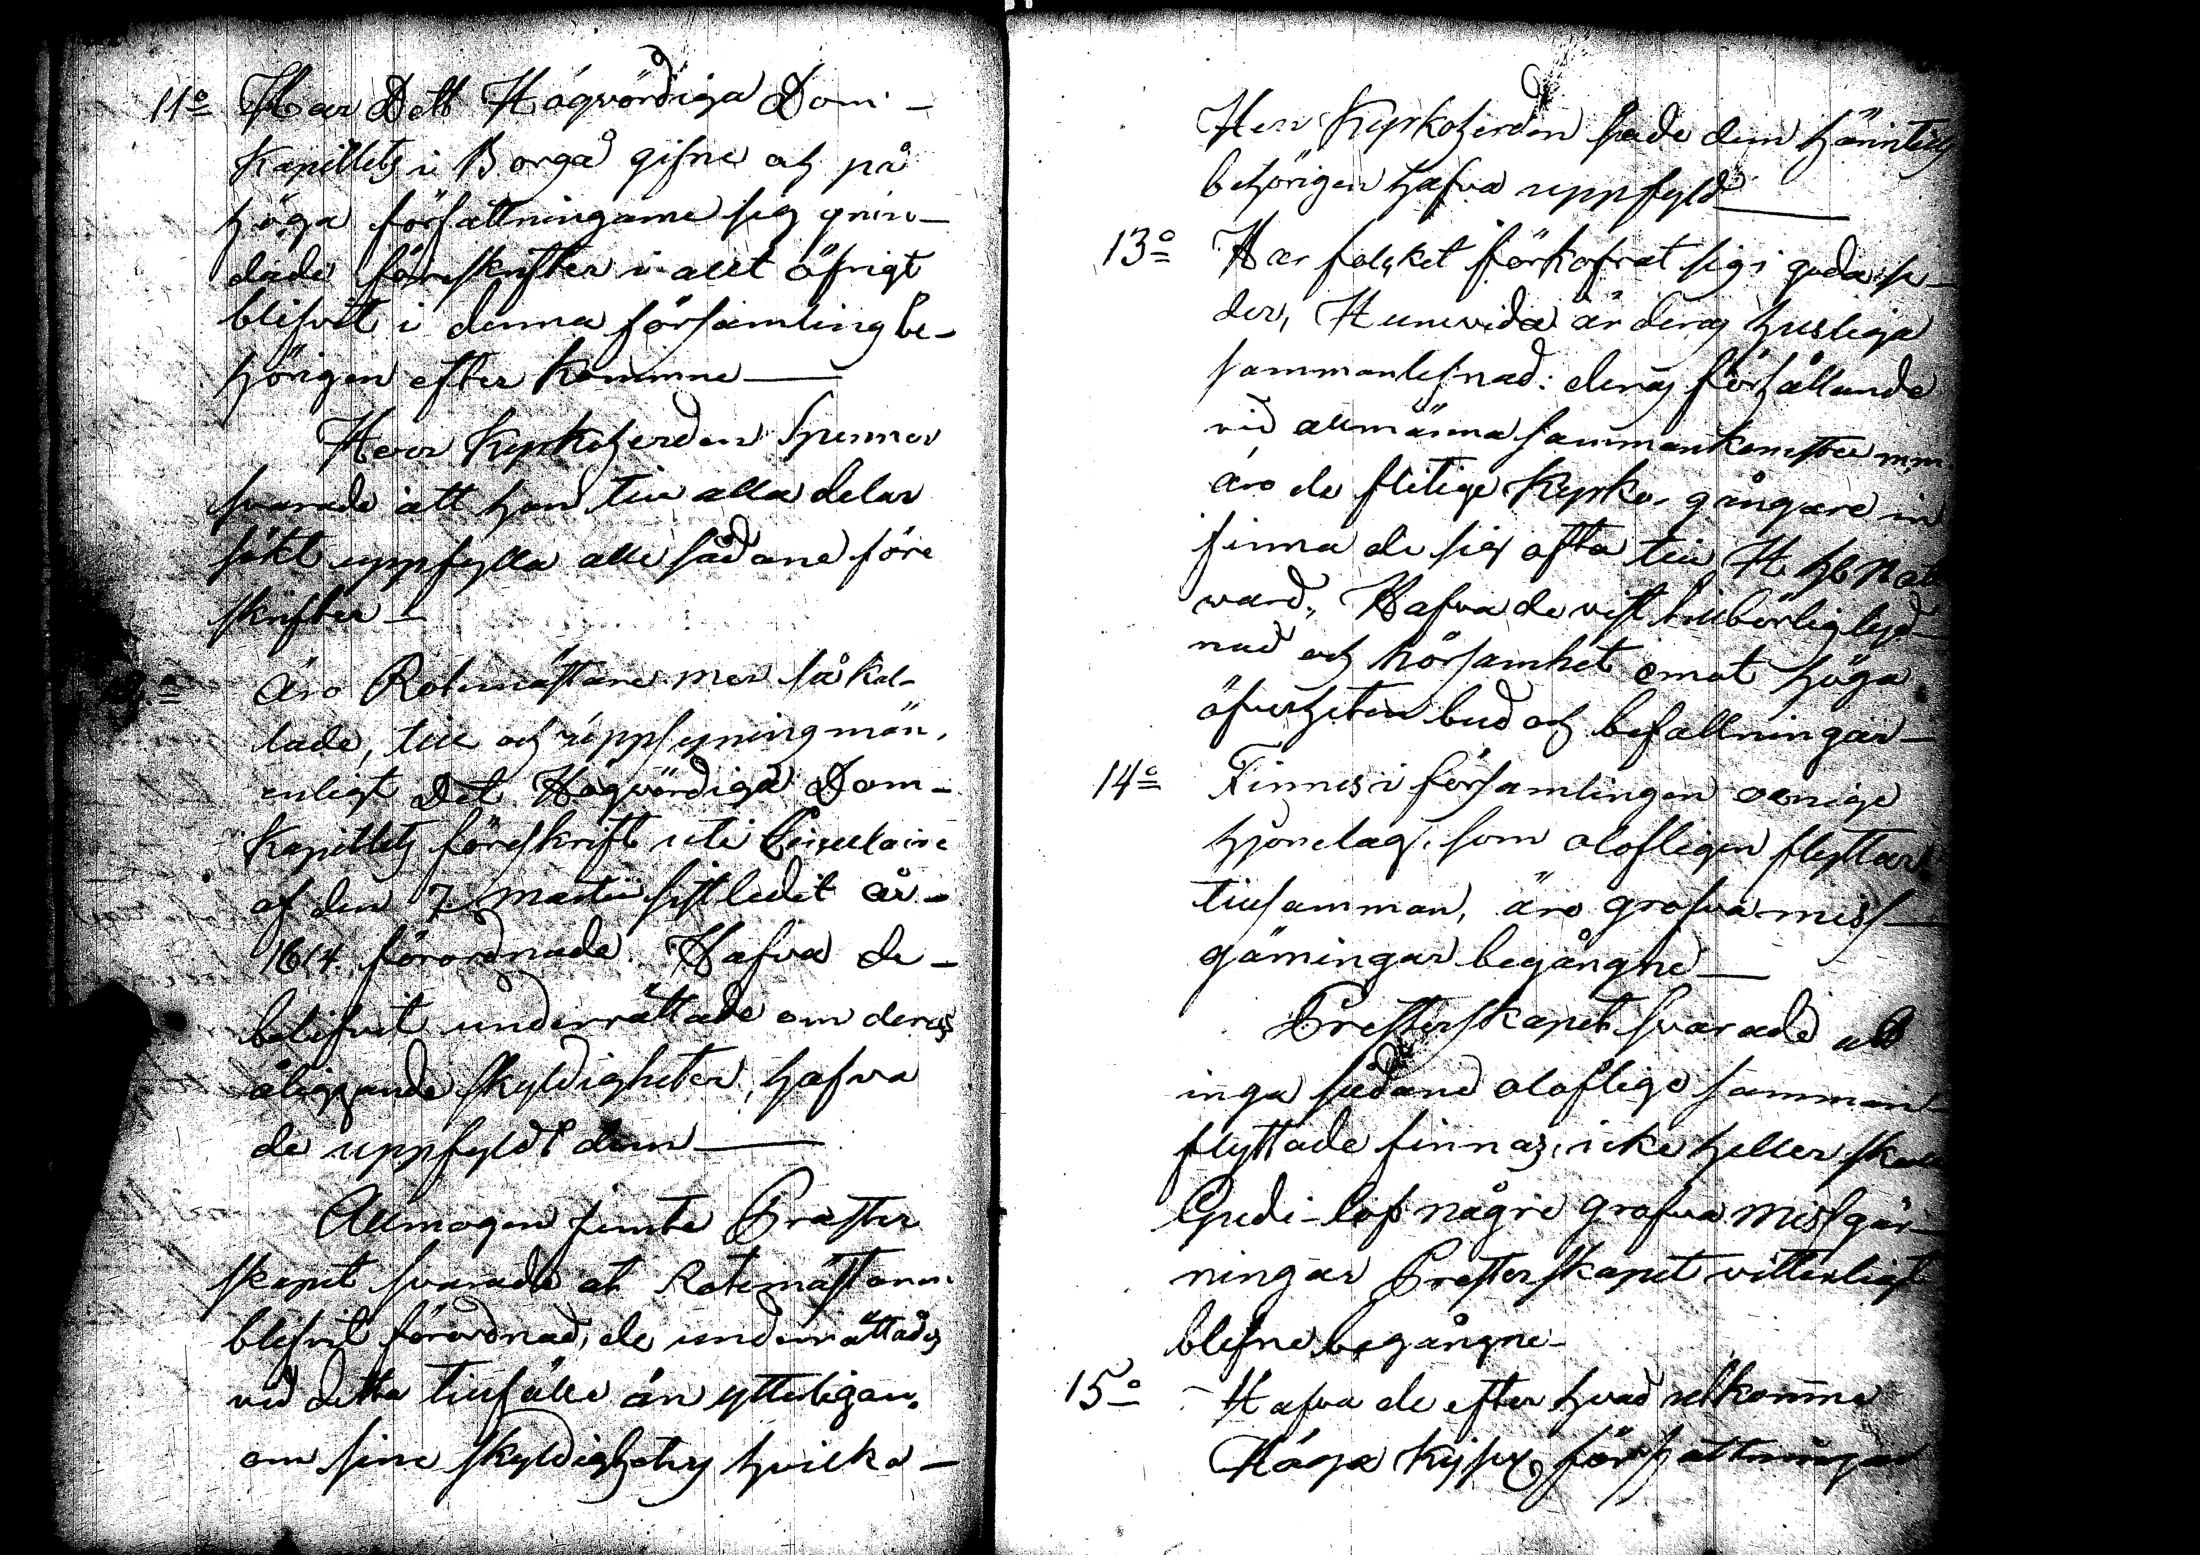 11o Har Dett Högvördiga Dom-
Kapitlets i Borgå gifne och på
höga författningarne sig grun-
dade föreskrifter i allt öfrigt
blifvit i denna församling be-
hörigen efter komne
Herr Kyrkoherden
svarade att han till alla delar
sökt uppfylla alle sådane före
skrifter
Äro Rotemästare mer så kal-
lade, till och uppsyningsmän,
enligt Det Högvördiga Dom-
Kapitlets föreskrift uti Circulaire
af den 7 Martii sistledit år-
förordnade. Hafva de-
blifvit underrättade om deras
åliggande skyldigheter, hafva
de uppfyldt dem
Allmogen jemte Prester
skapet svarade at Rotemästarne
blifvit förordnad, de underrättades
vid detta tillfälle än ytterligare
om sine skyldigheter hvilka-
Herr Kyrkoherden sade dem
behörigen hafva uppfyld
13o Har folket förkofrat sig i goda se-
der, Hurevida är deras husliga
sammanlefnad: deras förhållande
vid allmänna sammankomster m.m.
äro de flitige Kyrko-gångare in
finna de sig ofta till H. H. Natt
vard, Hafva de vist tillbörlig lyd-
nad och hörsamhet emot höga
öfverheten bud och befallningar-
14o Finnes i församlingen oenige
hjonelag, som olofligen flyttar
tillsamman, äro grofva miss-
gärningar begångne
Presterskapet svarade att
inga sådane oloflige samman-
flyttade finnas, icke heller
Gudi-lof någre grofva missgär-
ningar Presterskapet vitterligt
blifne begångne-
15o Hafva de efter hvad utkomne
Höga författningar